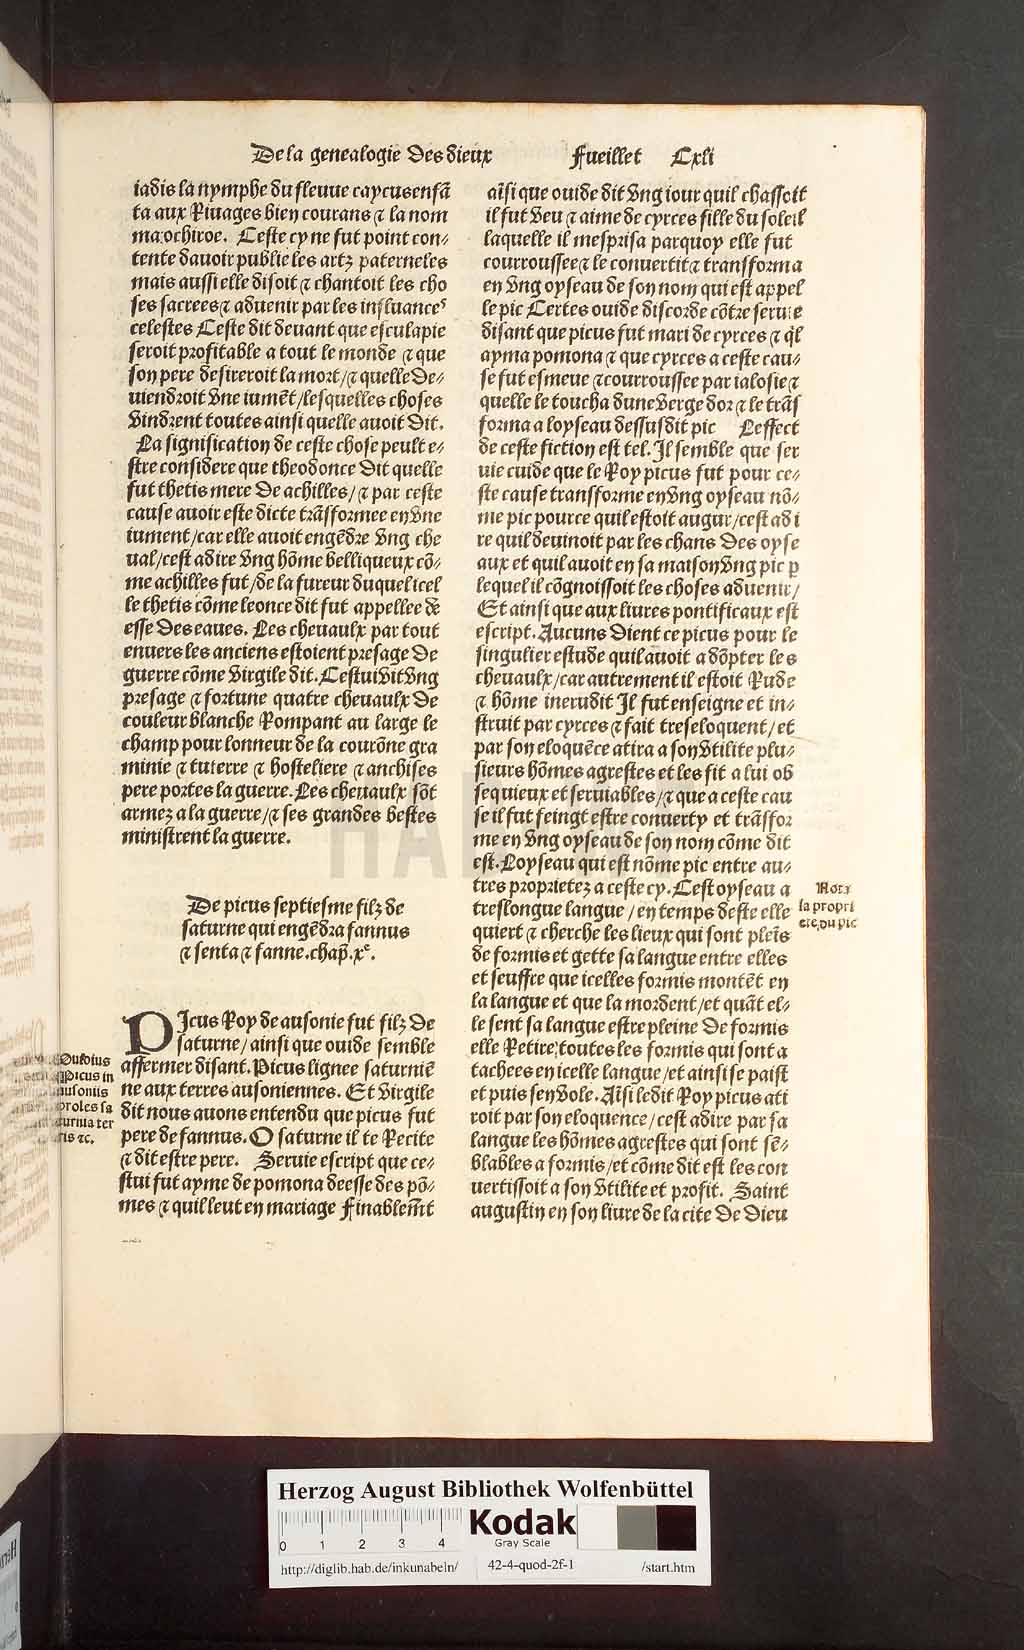 De la genealogie des dieux Fueillet Cxli
iadis la nymphe du fleuue caycus enfã
ta aux Riuages bien courans ⁊ la nom
ma ochiroe. Ceste cy ne fut point con-
tente dauoir publie les artz paterneles
mais aussi elle disoit ⁊ chantoit les cho
ses sacrees ⁊ aduenir par les influances
celestes Ceste dit deuant que esculapie
seroit profitable a tout le monde ⁊ que
son pere desireroit la mort/⁊ quelle de-
uiendroit vne iumẽt/lesquelles choses
vindrent toutes ainsi quelle auoit dit.
La signification de ceste chose peult e-
stre considere que theodonce dit quelle
fut thetis mere de achilles/⁊ par ceste
cause auoir este dicte trãsformee en vne
iument/car elle auoit engẽdre vng che
ual/cest adire vng hõme belliqueux cõ-
me achilles fut/de la fureur duquel icel
le thetis cõme leonce dit fut appellee de
esse des eaues. Les cheuaulx par tout
enuers les anciens estoient presage de
guerre cõme virgile dit. Cestui vit vng
presage ⁊ fortune quatre cheuaulx de
couleur blanche Rompant au large le
champ pour lonneur de la courõne gra
minie ⁊ tuterre ⁊ hosteliere ⁊ anchises
pere portes la guerre. Les cheuaulx sõt
armez a la guerre/⁊ ses grandes bestes
ministrent la guerre.
De picus septiesme filz de
saturne qui engẽdra fannus
⁊ senta ⁊ fanne. chap̃. xe.
PIcus Roy de ausonie fut filz de
saturne/ainsi que ouide semble
affermer disant. Picus lignee saturniẽ
ne aux terres ausoniennes. Et virgile
dit nous auons entendu que picus fut
pere de fannus. O saturne il te Recite
⁊ dit estre pere. Seruie escript que ce-
stui fut ayme de pomona deesse des põ-
mes ⁊ quil leut en mariage Finablem̃t
Ouidius
Picus in
ausoniis
proles sa
turnia ter
ris ⁊c.
aĩsi que ouide dit vng iour quil chassoit
il fut veu ⁊ aime de cyrces fille du soleil
laquelle il mesprisa parquoy elle fut
courroussee ⁊ le conuertit ⁊ transforma
en vng oyseau de son nom qui est appel
le pic Certes ouide discorde cõtre seruie
disant que picus fut mari de cyrces ⁊ q̃l
ayma pomona ⁊ que cyrces a ceste cau-
se fut esmeue ⁊ courroussee par ialosie ⁊
quelle le toucha dune verge dor ⁊ le trãs
forma a loyseau dessusdit pic Leffect
de ceste fiction est tel. Il semble que ser
uie cuide que le Roy picus fut pour ce-
ste cause transforme en vng oyseau nõ-
me pic pource quil estoit augur/cest adi
re quil deuinoit par les chans des oyse
aux et quil auoit en sa maison vng pic ꝑ
lequel il cõgnoissoit les choses aduenir/
Et ainsi que aux liures pontificaux est
escript. Aucuns dient ce picus pour le
singulier estude quil auoit a dõpter les
cheuaulx/car autrement il estoit Rude
⁊ hõme inerudit Il fut enseigne et in-
struit par cyrces ⁊ fait treseloquent/et
par son eloquẽce atira a son vtilite plu-
sieurs hõmes agrestes et les fit a lui ob
sequieux et seruiables/⁊ que a ceste cau
se il fut feingt estre conuerty et trãsfor
me en vng oyseau de son nom cõme dit
est. Loyseau qui est nõme pic entre au-
tres proprietez a ceste cy. Cest oyseau a
treslongue langue/en temps deste elle
quiert ⁊ cherche les lieux qui sont pleĩs
de formis et gette sa langue entre elles
et seuffre que icelles formis montẽt en
la langue et que la mordent/et quãt el-
le sent sa langue estre pleine de formis
elle Retire toutes les formis qui sont a
tachees en icelle langue/et ainsi se paist
et puis sen vole. Aĩsi ledit Roy picus ati
roit par son eloquence/cest adire par sa
langue les hõmes agrestes qui sont sẽ-
blables a formis/et cõme dit est les con
uertissoit a son vtilite et profit. Saint
augustin en son liure de la cite de dieu
Nota
la propri
ete du pic
Herzog August Bibliothek Wolfenbüttel
0 1 2 3 4
Kodak
Gray Scale
http://diglib.hab.de/inkunabeln/ 42-4-quod-2f-1 /start.htm